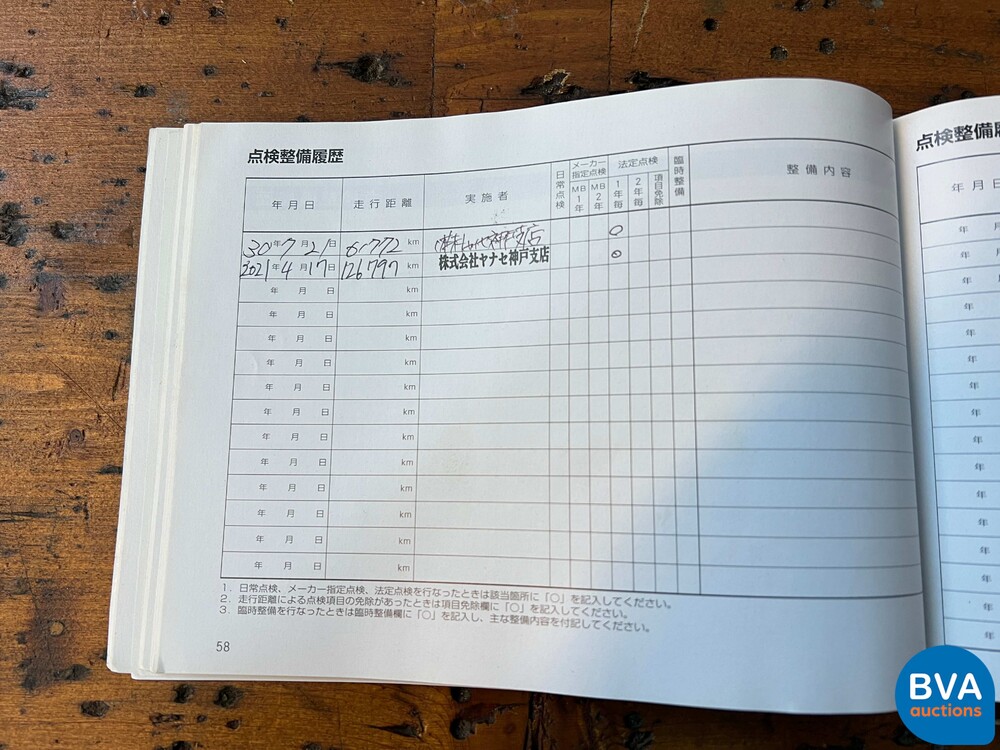 点検整備履歴
年月日 走行距離 実施者 日常点検 メーカー指定点検 MB1年 MB2年 法定点検 1年毎 2年毎 項目免除 臨時整備 整備内容
30年7月21日 61772 km ㈱ヤナセ神戸支店 ○
2021年4月17日 126797 km 株式会社ヤナセ神戸支店 ○
年 月 日 km
年 月 日 km
年 月 日 km
年 月 日 km
年 月 日 km
年 月 日 km
年 月 日 km
年 月 日 km
年 月 日 km
年 月 日 km
年 月 日 km
年 月 日 km
1. 日常点検、メーカー指定点検、法定点検を行なったときは該当箇所に「○」を記入してください。
2. 走行距離による点検項目の免除があったときは項目免除欄に「○」を記入してください。
3. 臨時整備を行なったときは臨時整備欄に「○」を記入し、主な整備内容を付記してください。
58
点検整備履
年月日
年
年
年
年
年
年
年
年
年
年
年
年
年
年
BVA
auctions